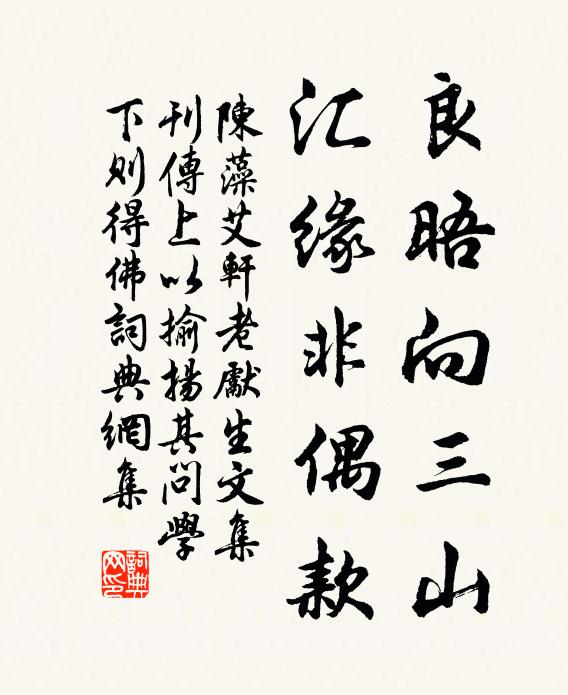 良晤向三山
汇缘非偶款
陳藻艾軒老獻生文集
刊傳上以揄揚其問學
下則得佛詞典網集
詞典
网印